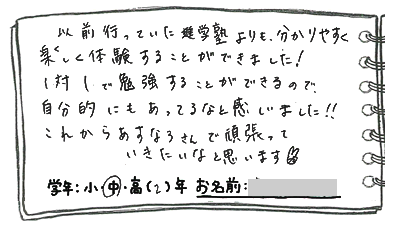 以前行っていた進学塾よりも、分かりやすく
楽しく体験することができました!
1対1で勉強することができるので、
自分的にもあってるなと感いました!!
これからあすなろさんで頑張って
いきたいなと思います
学年:小・中・高(2)年 お名前: